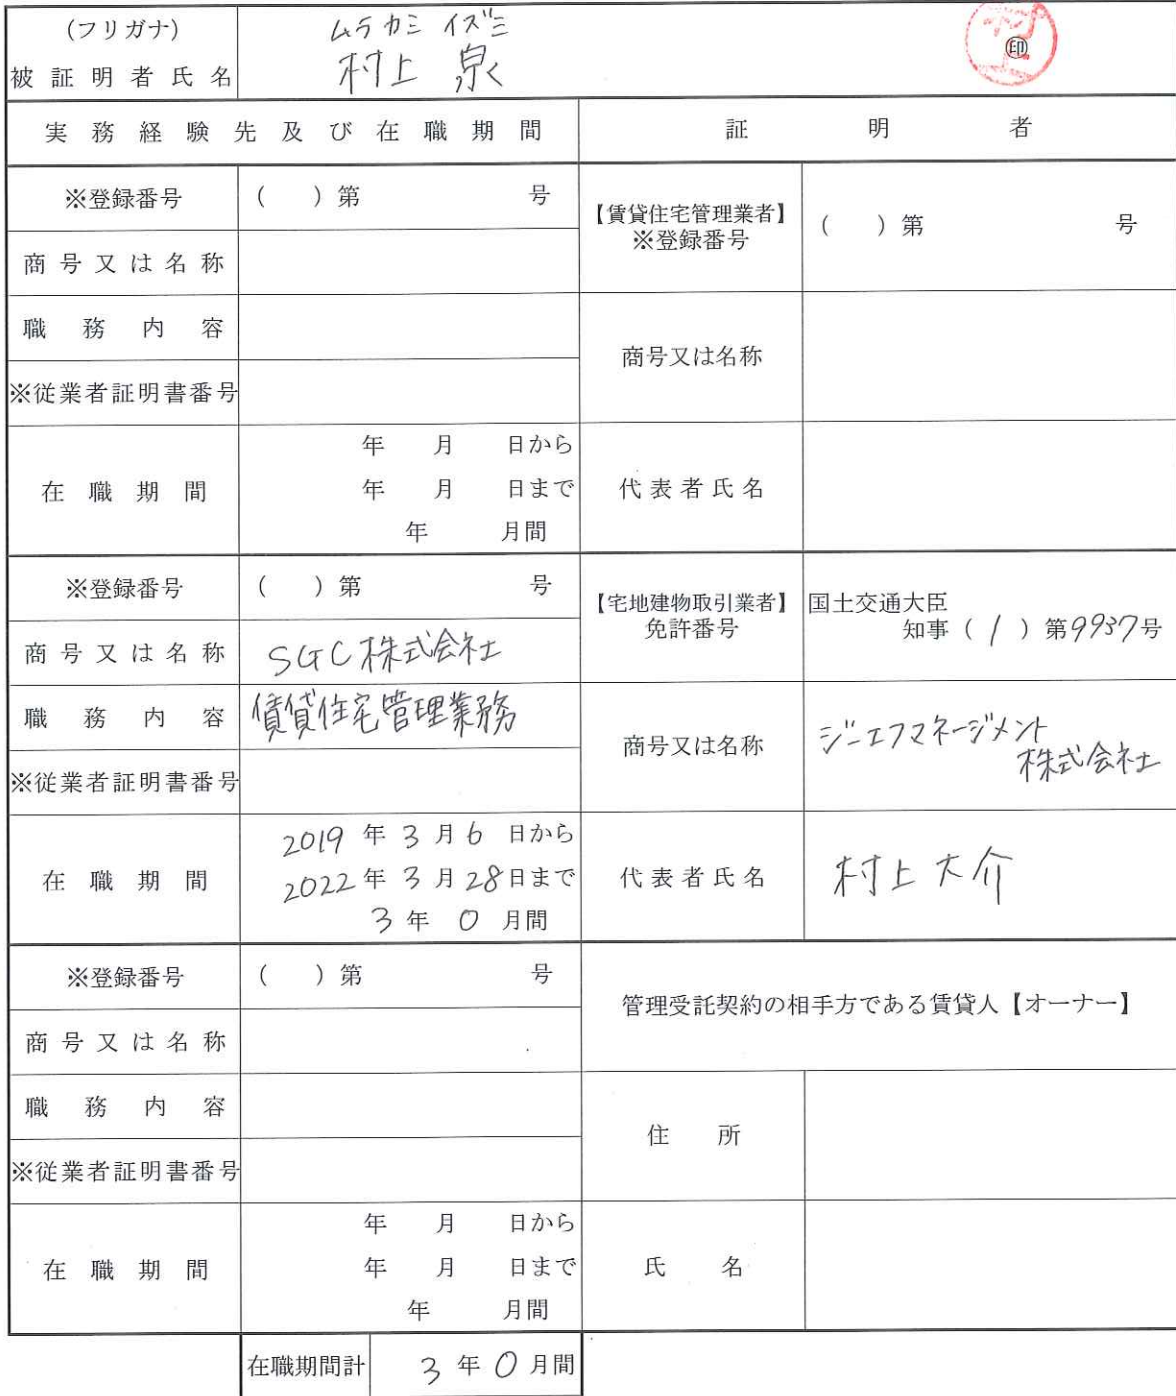 (フリガナ) ムラカミ イズミ
被証明者氏名 村上 泉 ㊞
実務経験先及び在職期間 証明者
※登録番号 ( )第 号
【賃貸住宅管理業者】
※登録番号 ( )第 号
商号又は名称
職務内容
商号又は名称
※従業者証明書番号
在職期間
年 月 日から
年 月 日まで
年 月間
代表者氏名
※登録番号 ( )第 号
【宅地建物取引業者】
免許番号
国土交通大臣
知事(1)第9937号
商号又は名称 SGC株式会社
職務内容 賃貸住宅管理業務
商号又は名称
ジーエフマネージメント
株式会社
※従業者証明書番号
在職期間
2019年3月6日から
2022年3月28日まで
3年0月間
代表者氏名 村上大介
※登録番号 ( )第 号
管理受託契約の相手方である賃貸人【オーナー】
商号又は名称
職務内容
住所
※従業者証明書番号
在職期間
年 月 日から
年 月 日まで
年 月間
氏名
在職期間計 3年0月間